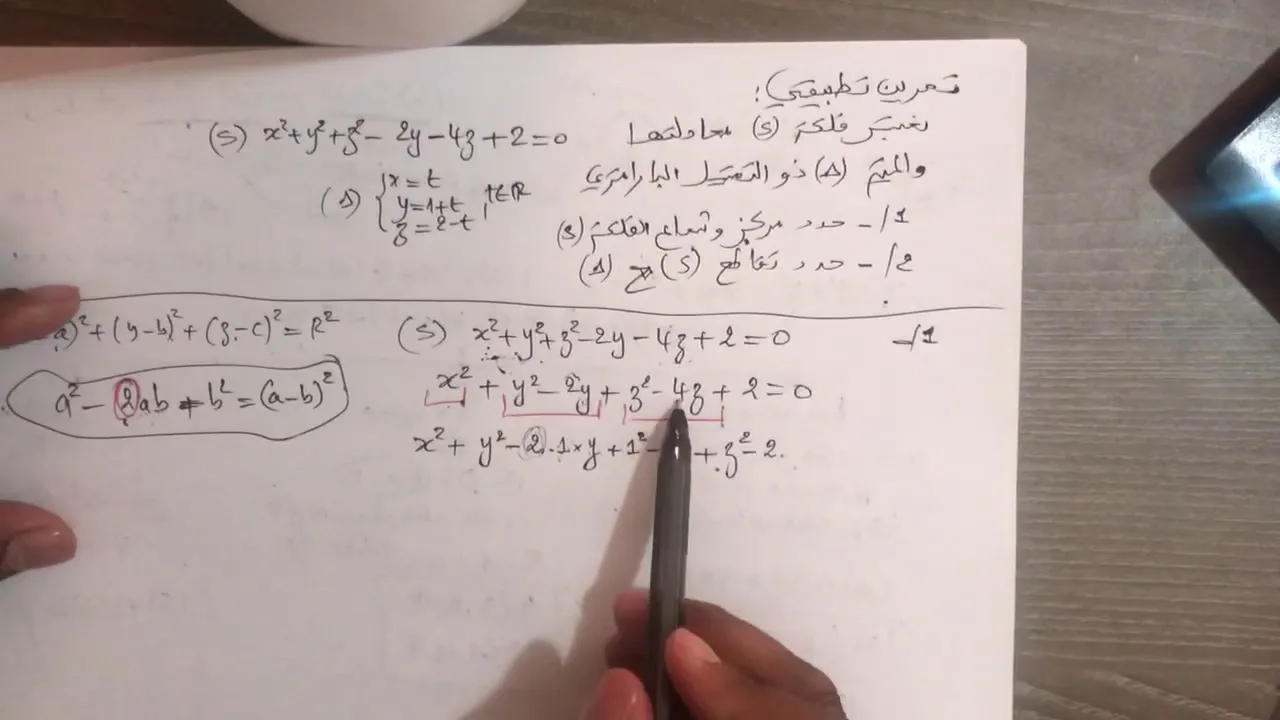 تمرين تطبيقي :
نعتبر فلكة (S) معادلتها (S) x²+y²+z²-2y-4z+2=0
والمستقيم (Δ) ذو التمثيل البارامتري (Δ) { x=t
y=1+t , t∈ℝ
z=2-t
1/- حدد مركز وشعاع الفلكة (S)
2/- حدد تقاطع (S) مع (Δ)
1/- (S) x²+y²+z²-2y-4z+2=0
a)²+(y-b)²+(z-c)²=R²
x²+y²-2y+z²-4z+2=0
a²-2ab+b²=(a-b)²
x²+y²-2.1×y+1²- +z²-2.